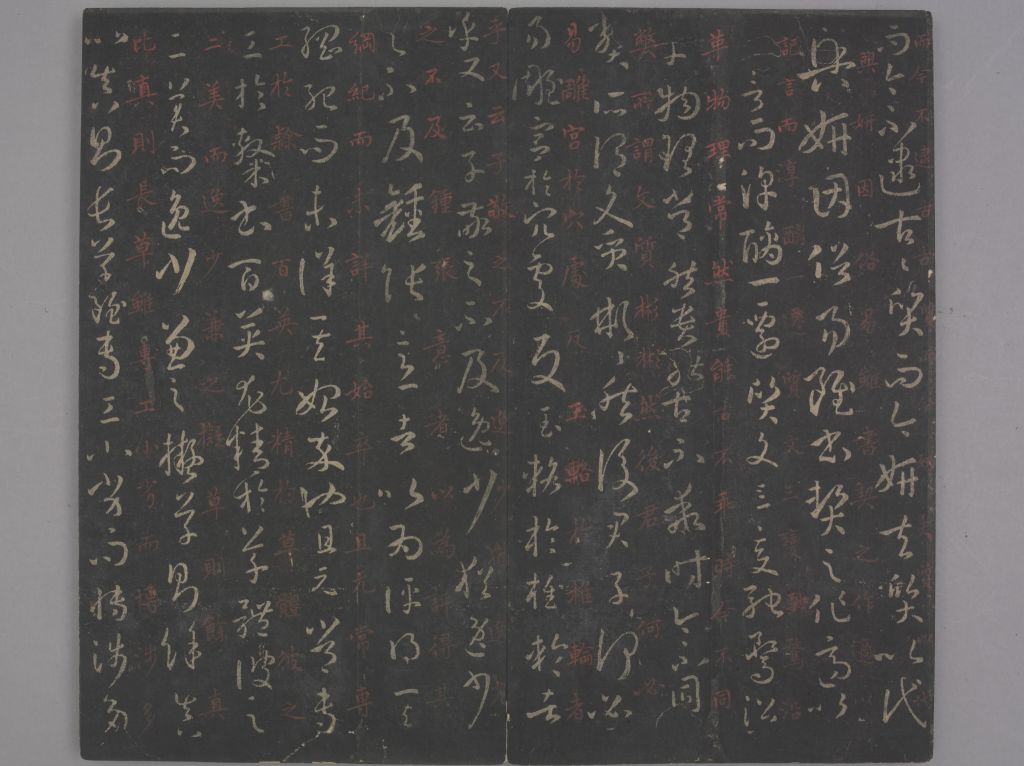 而今不逮古古質而今妍夫質以代
興妍因俗易雖書契之作適以
記言而淳醨一遷質文三變馳鶩沿
革物理常然貴能古不乖時今不同
弊所謂文質彬彬然後君子何必
易雕宮於穴處反玉輅於椎輪者
乎又云子敬之不及逸少猶逸少
之不及鍾張意者以為評得其
綱紀而未詳其始卒也且元常專
工於隸書百英尤精於草體彼之
二美而逸少兼之擬草則餘真
比真則長草雖專工小劣而博涉多